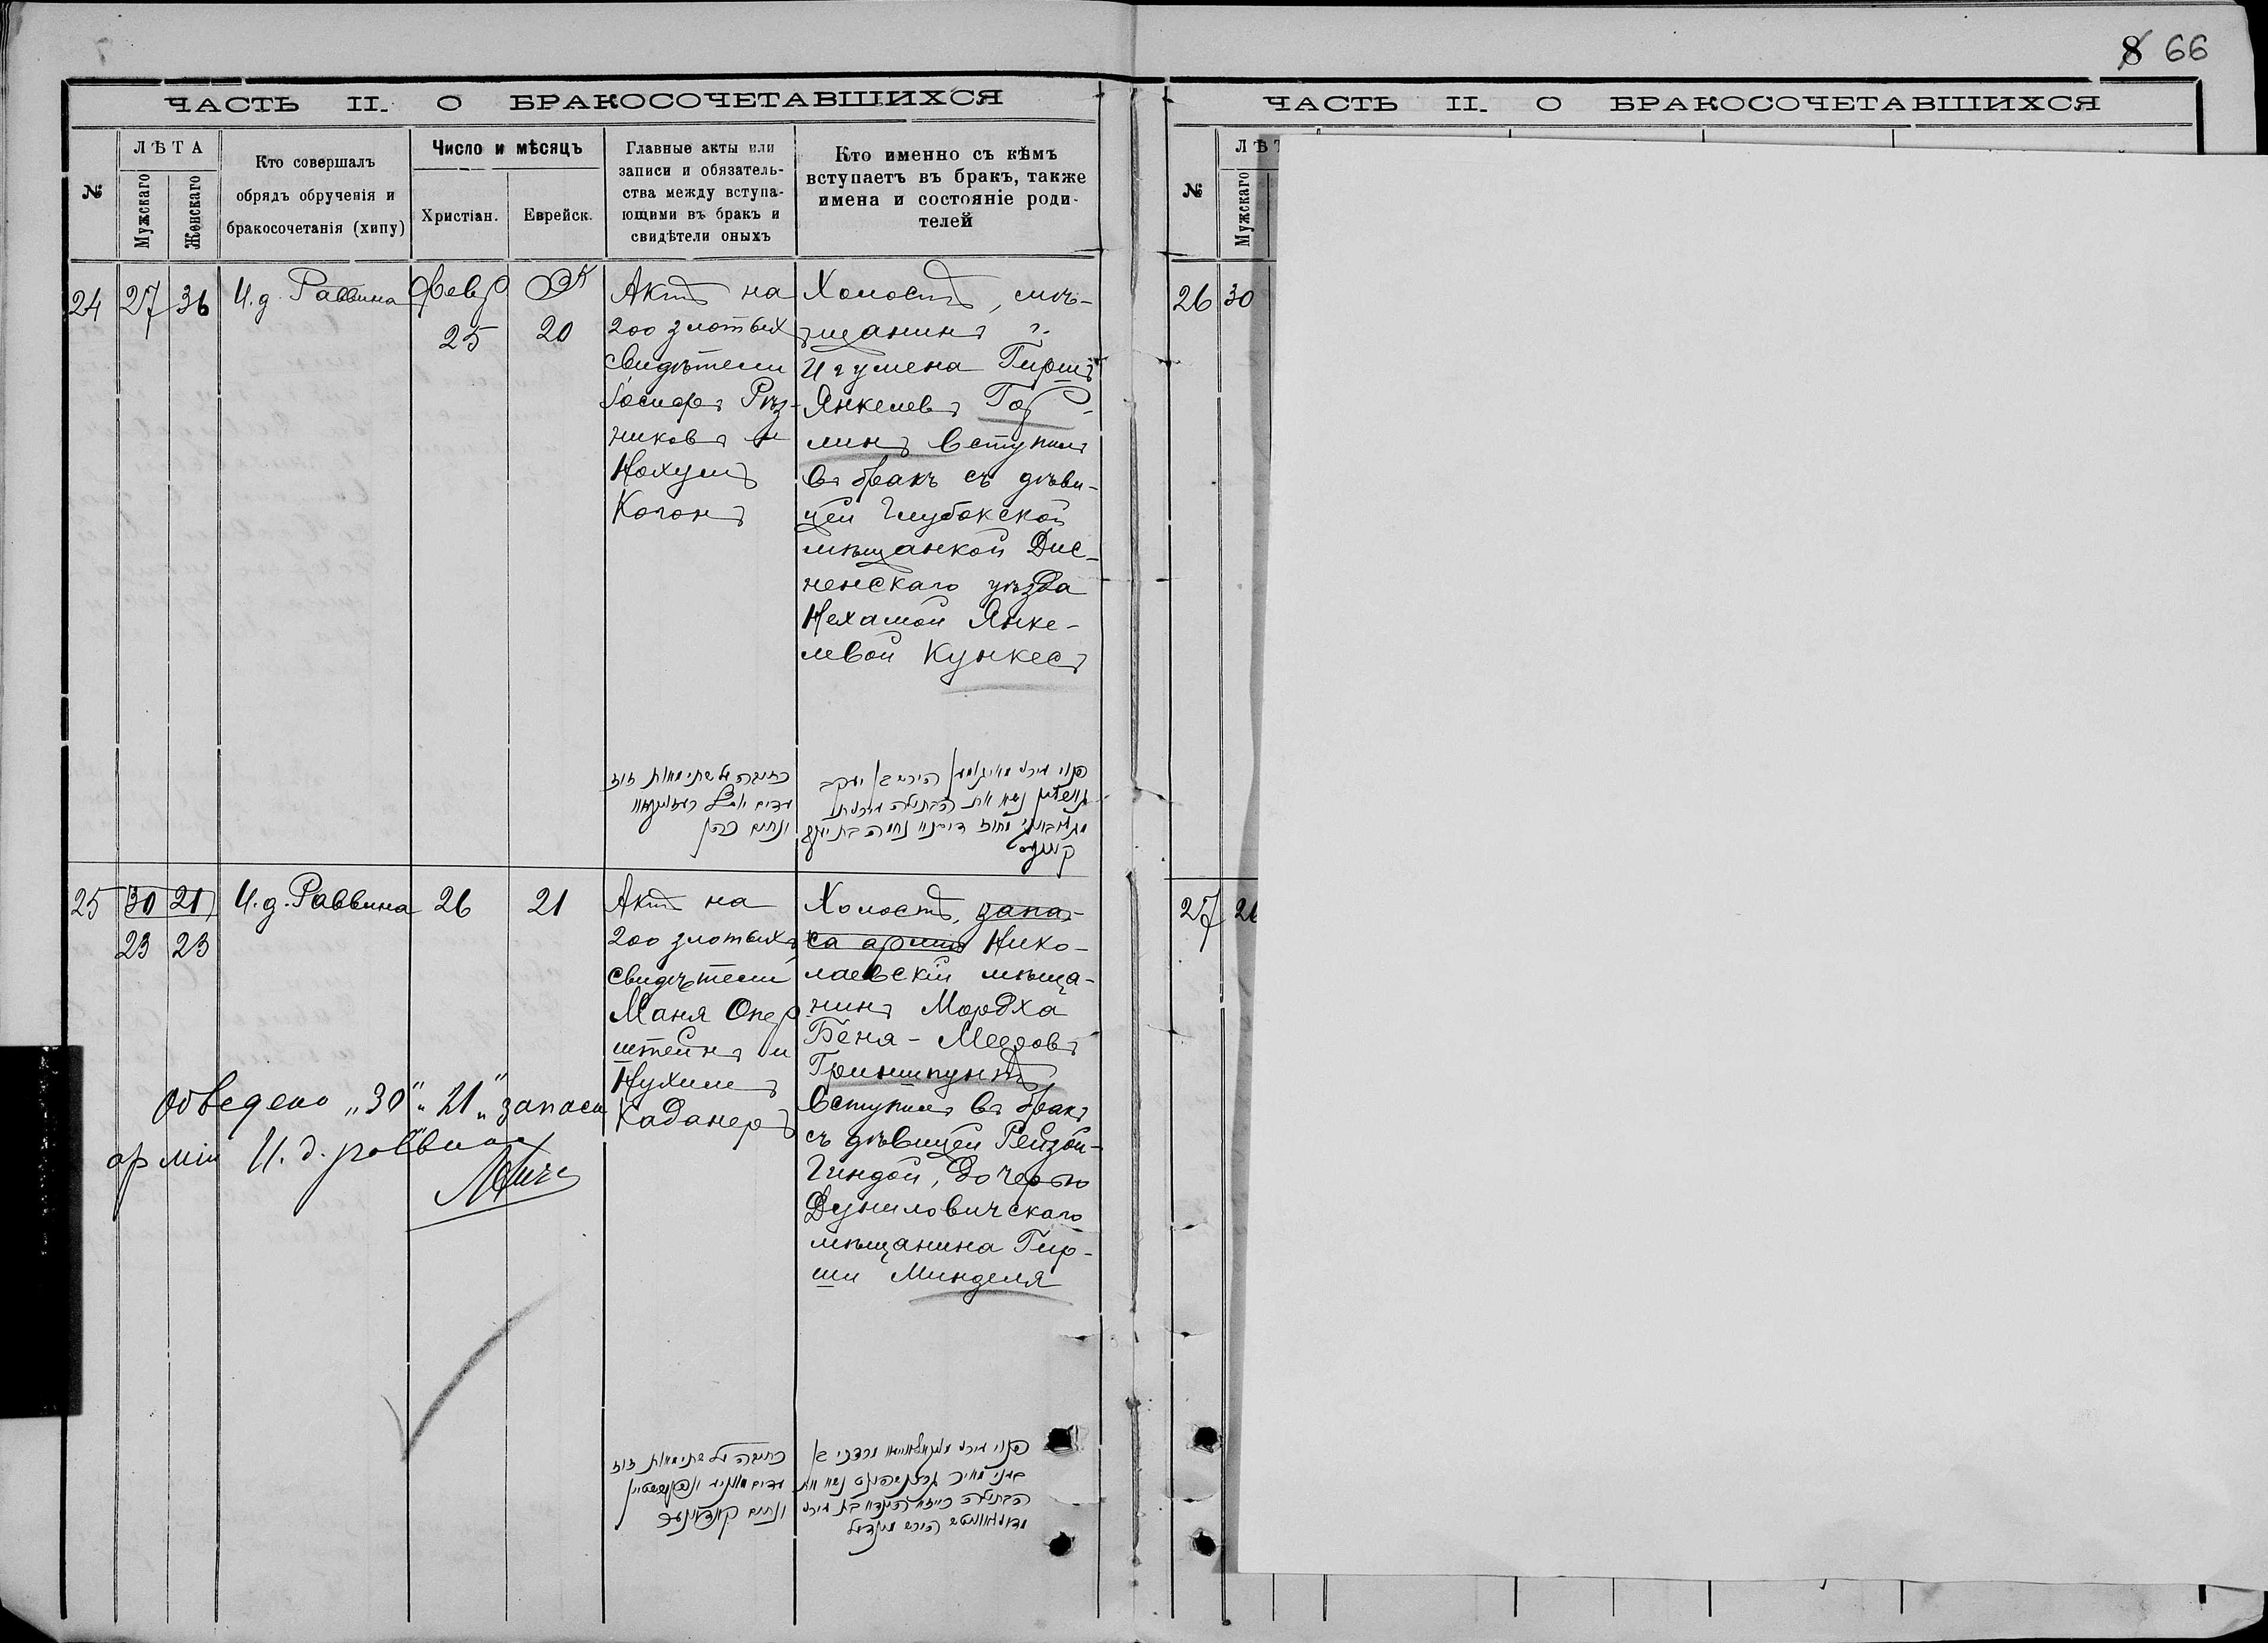 8 66
ЧАСТЬ II. О БРАКОСОЧЕТАВШИХСЯ
№
ЛѢТА
Мужскаго
Женскаго
Кто совершалъ
обрядъ обрученія и
бракосочетанія (хипу)
Число и мѣсяцъ
Христіан.
Еврейск.
Главные акты или
записи и обязатель-
ства между вступа-
ющими въ бракъ и
свидѣтели оныхъ
Кто именно съ кѣмъ
вступаетъ въ бракъ, также
имена и состояніе роди-
телей
24 27 36 И. д. Раввина
Февр
25
20
Актъ на
200 злотыхъ
свидѣтели
Іосифъ Рѣз-
никовъ и
Нохумъ
Коганъ
Холостъ, мѣ-
щанинъ г.
Игумена Гиршъ
Янкелевъ Гор-
линъ вступилъ
въ бракъ съ дѣви-
цей Глубокской
мѣщанкой Дис-
ненскаго уѣзда
Нехамой Янке-
левой Кункесъ
כתובה על שתי מאות זוז
ונחום כהן
25 30 21 И. д. Раввина 26 21
23 23
Актъ на
200 злотыхъ
свидѣтели
Маня Опер
штейнъ и
Нухимъ
Каданеръ
Холостъ, запа-
са арміи Нико-
лаевскій мѣща-
нинъ Мордха
Беня-Мееровъ
Гриншпунтъ
вступилъ въ бракъ
съ дѣвицей Рейзой-
Гиндой, дочерью
Дуниловичскаго
мѣщанина Гир-
ши Минделя
Обведено „30" „21" запаса
арміи И. д. раввина
כתובה על שתי מאות זוז
ЧАСТЬ II. О БРАКОСОЧЕТАВШИХСЯ
№
ЛѢТ
Мужскаго
26 30
27